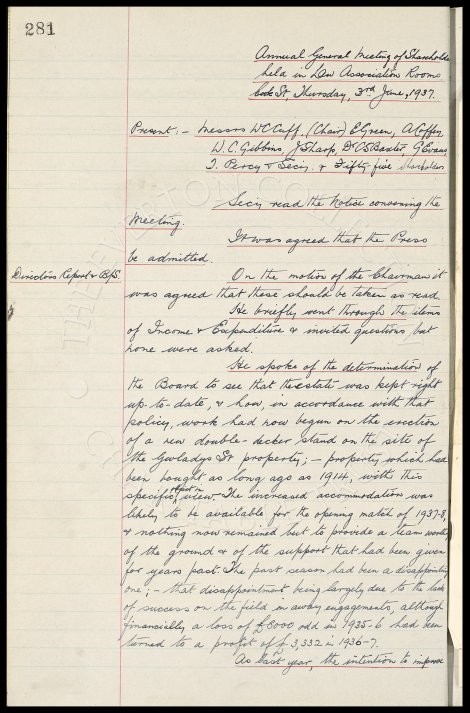 281
Annual General Meeting of Shareholde
held in Law Association Rooms
Cook St, Thursday, 3rd June, 1937.
Present:- Messrs W C Cuff, (Chair) E Green, A Coffey,
W. C. Gibbins, J Sharp, Dr C S Baxter, G Evans,
T. Percy & Secy. & Fifty five Shareholders.
Secy read the Notice convening the
Meeting.
It was agreed that the Press
be admitted.
Directors Report & B/S.
On the motion of the Chairman it
was agreed that these should be taken as read.
He briefly went through the items
of Income & Expenditure & invited questions, but
none were asked.
He spoke of the determination of
the Board to see that the estate was kept right
up-to-date, & how, in accordance with that
policy, work had now begun on the erection
of a new double-decker stand on the site of
the Gwladys St property; - property which had
been bought as long ago as 1914, with this
specific object in view. The increased accommodation was
likely to be available for the opening match of 1937-8,
& nothing now remained but to provide a team worthy
of the ground & of the support that had been given
for years past. The past season had been a disappointing
one; - that disappointment being largely due to the lack
of success on the field in away engagements, although
financially a loss of £8000 odd in 1935-6 had been
turned to a profit of £3,332 in 1936-7.
As last year, the intention to improve
THE EVERTON COLLECTION